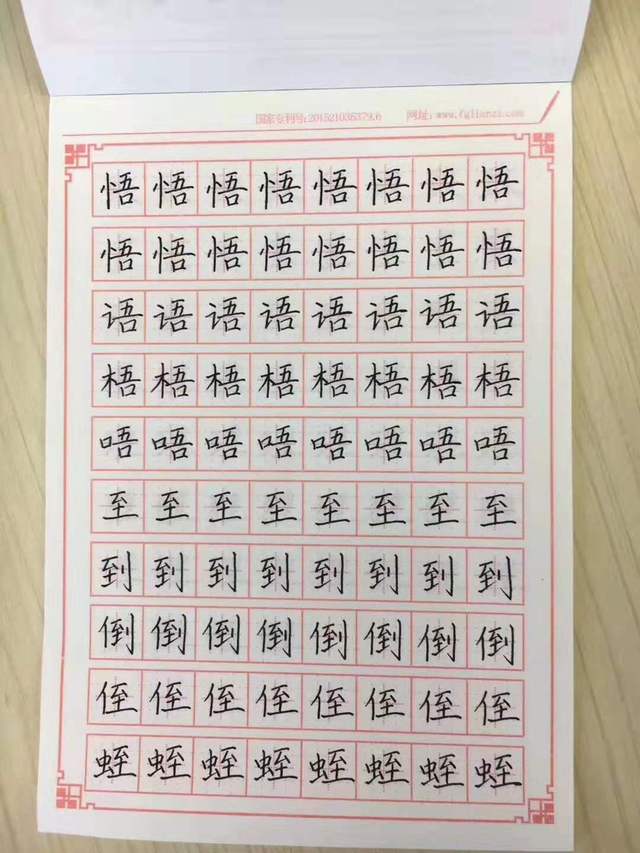 国家专利号:201521036379.6 网址:www.fglianzi.com
悟悟悟悟悟悟悟悟
悟悟悟悟悟悟悟悟
语语语语语语语语
梧梧梧梧梧梧梧梧
唔唔唔唔唔唔唔唔
至至至至至至至至
到到到到到到到到
倒倒倒倒倒倒倒倒
侄侄侄侄侄侄侄侄
蛭蛭蛭蛭蛭蛭蛭蛭